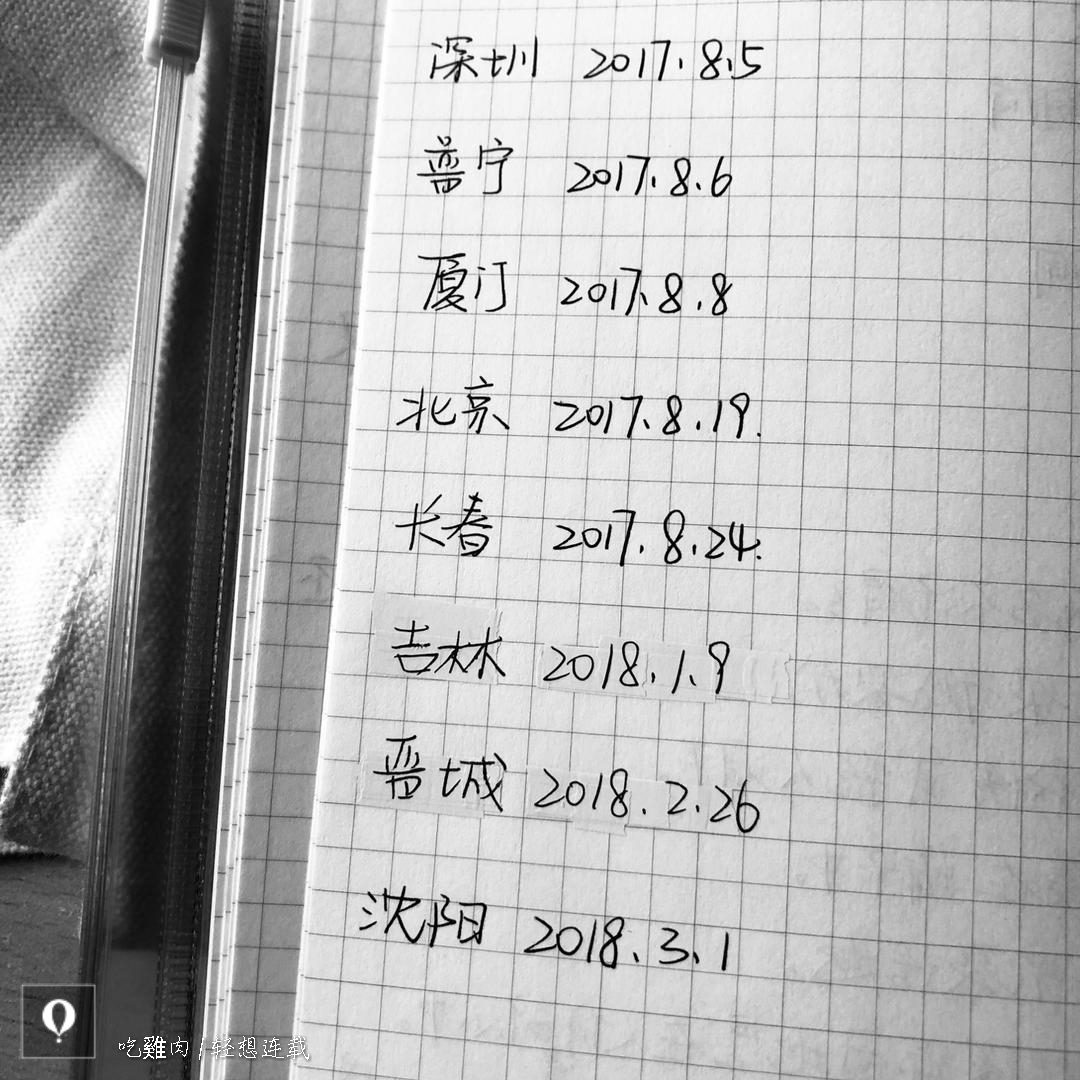 深圳 2017.8.5
普宁 2017.8.6
厦门 2017.8.8
北京 2017.8.19.
长春 2017.8.24.
吉林 2018.1.9
晋城 2018.2.26
沈阳 2018.3.1
吃雞肉 / 轻想连载